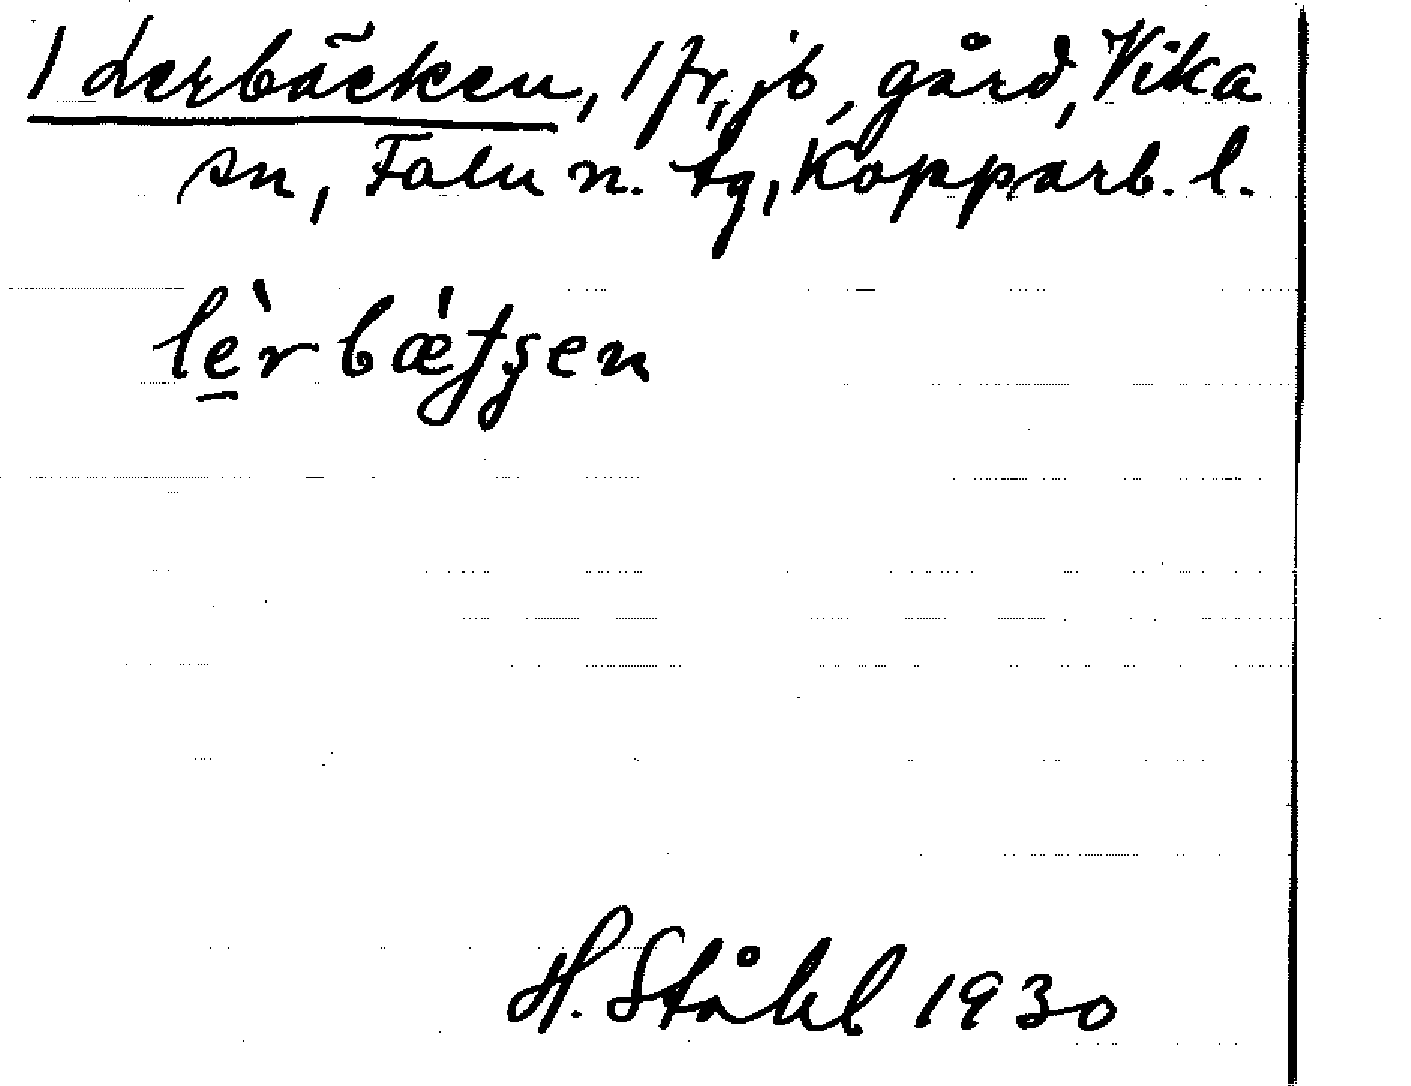 1 Lerbäcken, 1 fr, jb, gård, Vika
sn, Falu n. tg, Kopparb. l.
lè̱rbǽƭʂen
H. Ståhl 1930